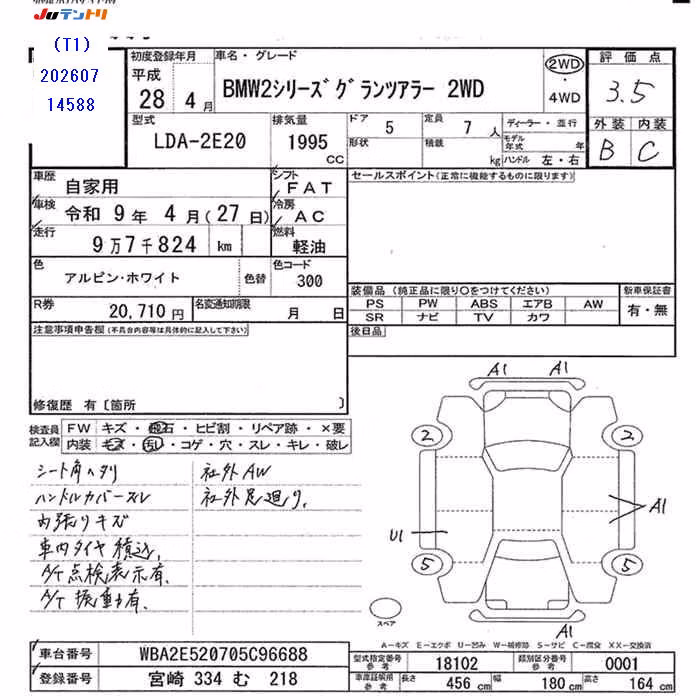 Juテントリ
(T1)
202607
14588
初度登録年月
平成
28 4 月
車名・グレード
BMW2シリーズグランツアラー 2WD
2WD
・
4WD
評価点
3.5
外装 内装
B C
型式
LDA-2E20
排気量
1995
CC
ドア
5
形状
定員 7 人
積載 kg
ディーラー・並行
モデル年式 年
ハンドル 左・右
車歴
自家用
シフト
FAT
車検
令和 9 年 4 月 (27 日)
冷房
AC
走行
9万7千824 km
燃料
軽油
色
アルピン・ホワイト
色替
色コード
300
R券
20,710 円
名変通知期限
月 日
セールスポイント(正常に機能するものに限ります)
装備品 (純正品に限り○をつけてください)
新車保証書
PS PW ABS エアB AW
SR ナビ TV カワ
有・無
後日品
注意事項申告欄(不具合内容等は具体的に記入して下さい)
修復歴 有〔箇所 〕
検査員
記入欄
FW キズ・飛石・ヒビ割・リペア跡・×要
内装 キズ・汚レ・コゲ・穴・スレ・キレ・破レ
シート角ヘタリ
ハンドルカバースレ
内張りキズ
車内タイヤ積込
A/T点検表示有.
A/T振動有.
社外AW
社外足廻り.
A1 A1
2 2
A1
U1
5 5
A1
スペア
A-キズ E-エクボ U-凹み W-補修跡 S-サビ C-腐食 XX-交換済
車台番号
WBA2E520705C96688
登録番号
宮崎 334 む 218
型式指定番号
参考
18102
類別区分番号
参考
0001
車庫証明用
参考
長さ 456 cm
幅 180 cm
高さ 164 cm